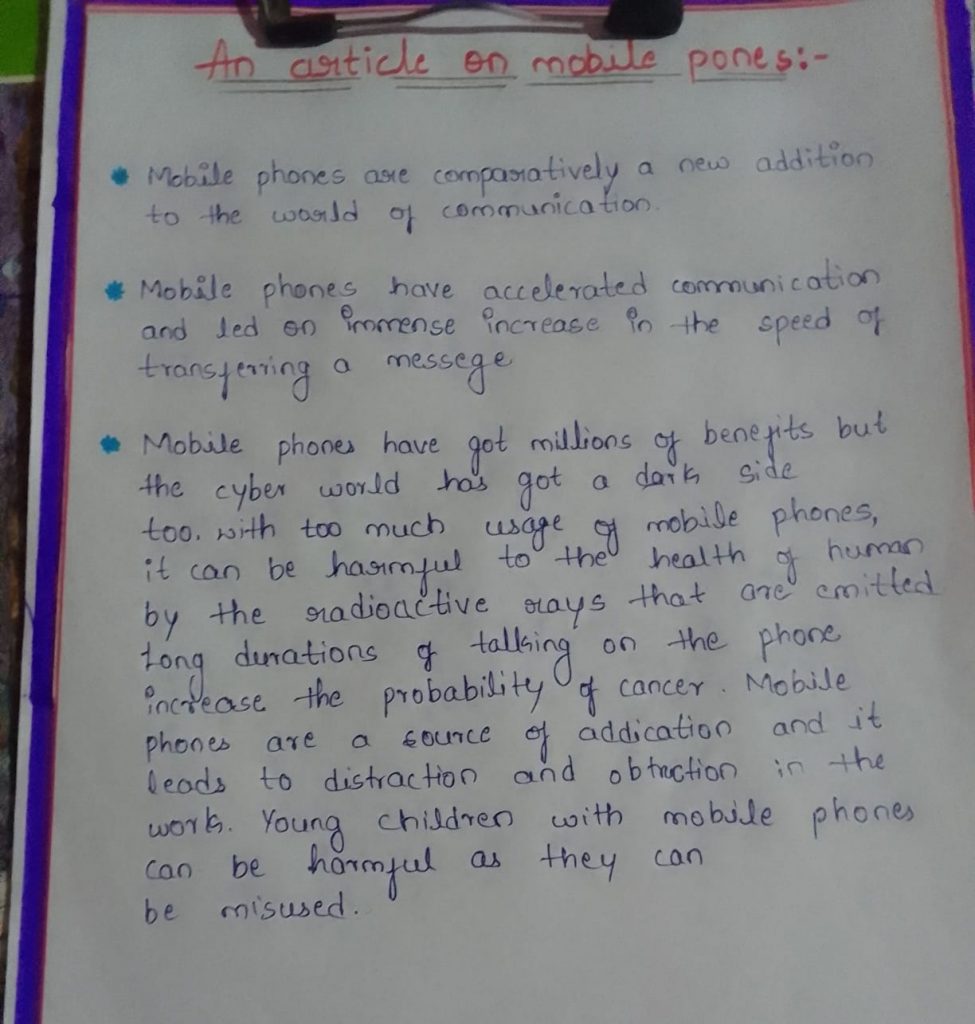 An article on mobile pones:-
Mobile phones are comparatively a new addition
to the world of communication.
Mobile phones have accelerated communication
and led on immense increase in the speed of
transferring a messege
Mobile phones have got millions of benefits but
the cyber world has got a dark side
too. with too much usage of mobile phones,
it can be harmful to the health of human
by the radioactive rays that are emitted
Long durations of talking on the phone
increase the probability of cancer. Mobile
phones are a source of addication and it
leads to distraction and obtruction in the
work. Young children with mobile phones
can be harmful as they can
be misused.